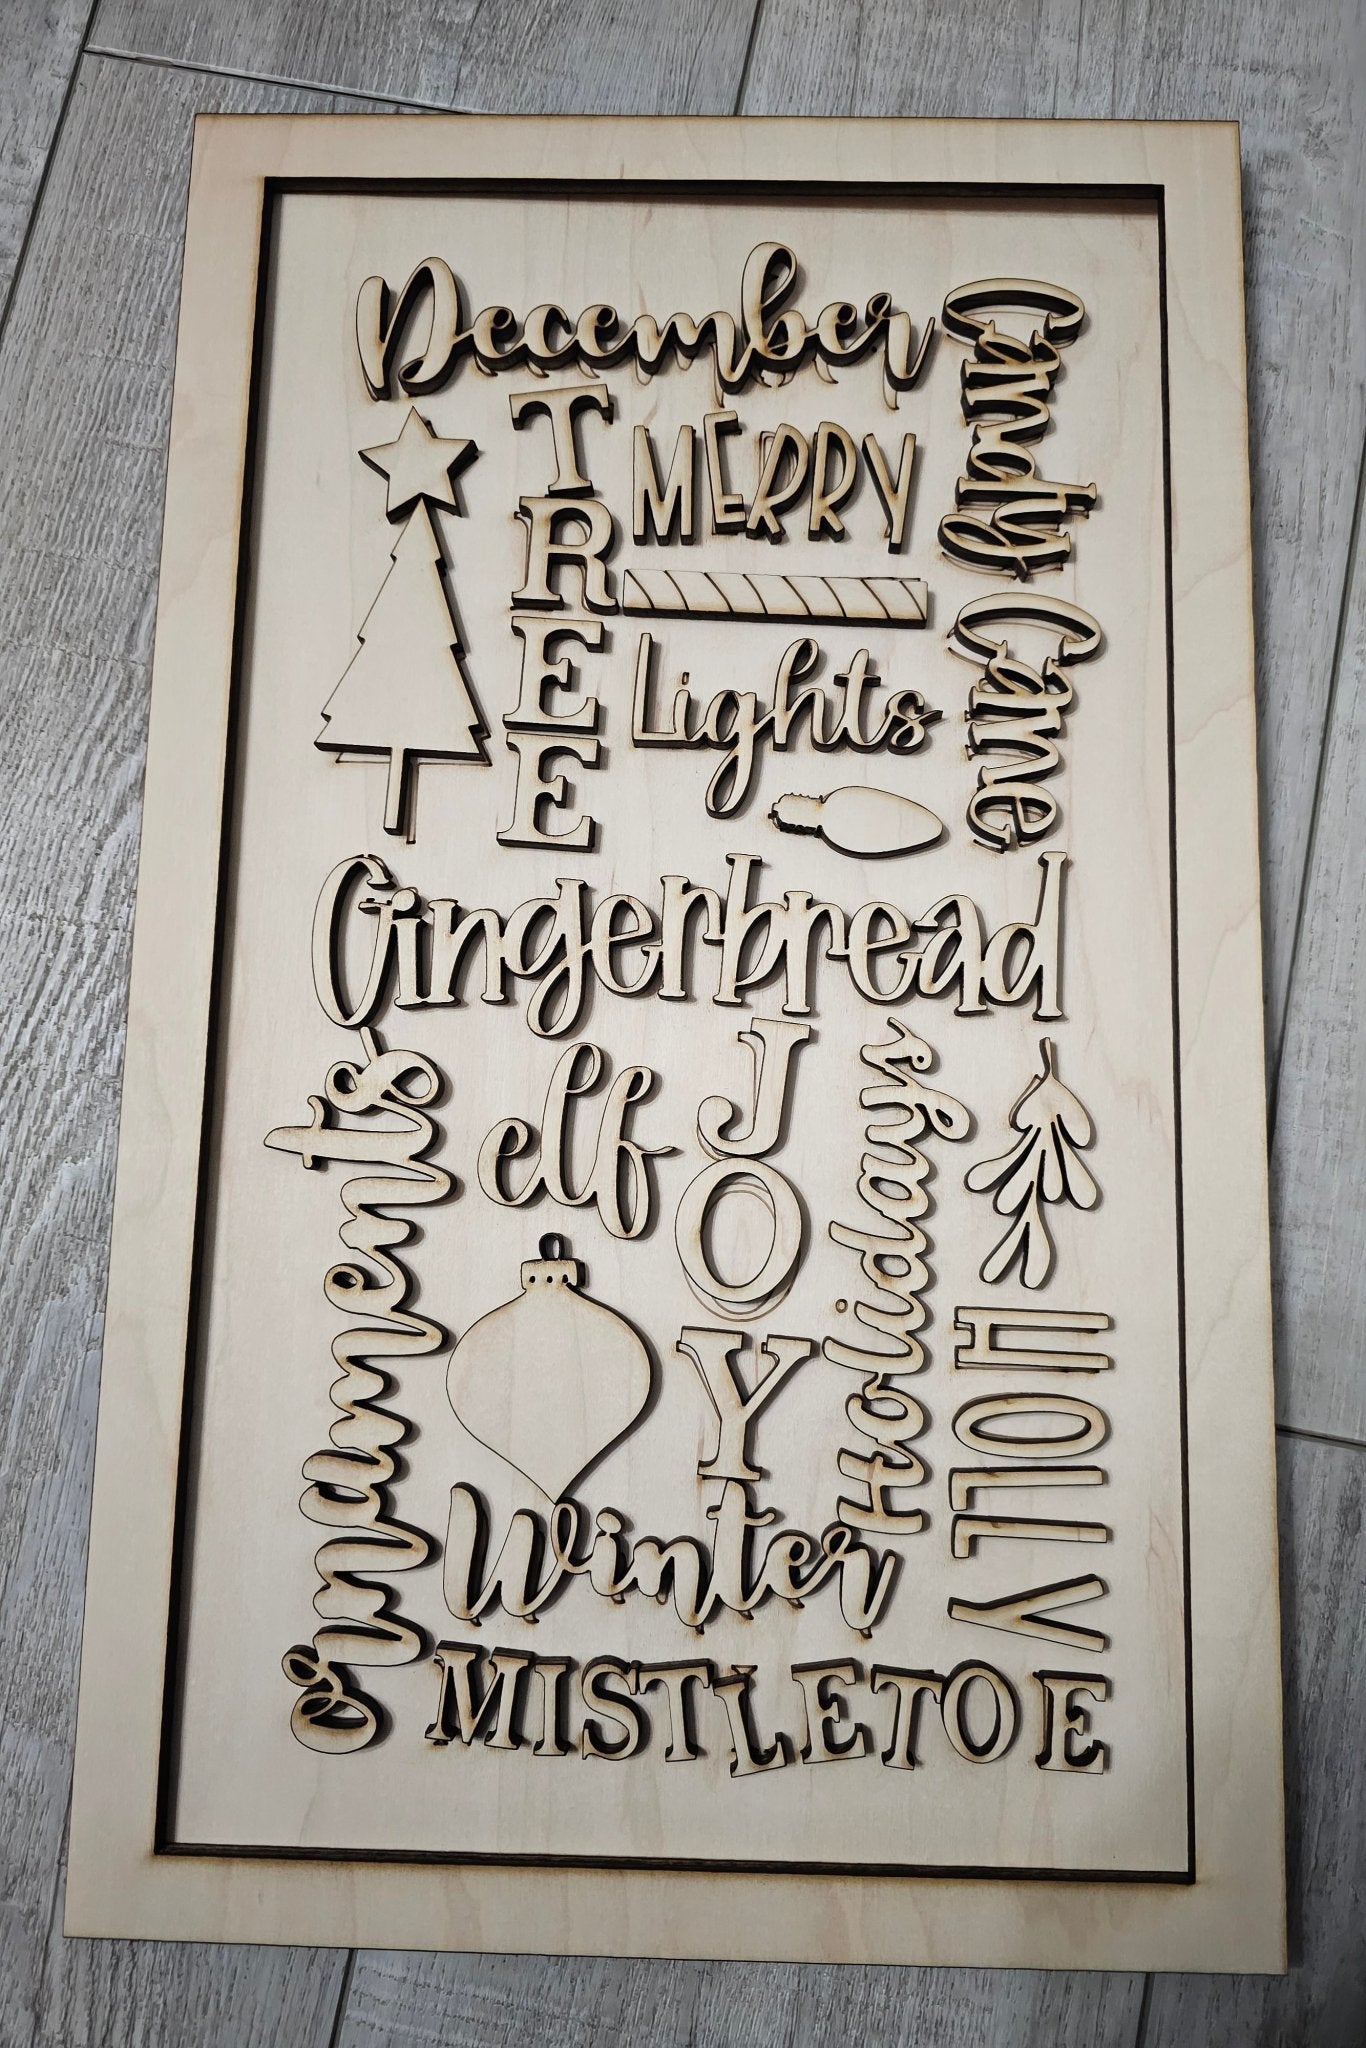 December
Candy Cane
TREE
MERRY
Lights
Gingerbread
Ornaments
elf
JOY
Holidays
HOLLY
Winter
MISTLETOE